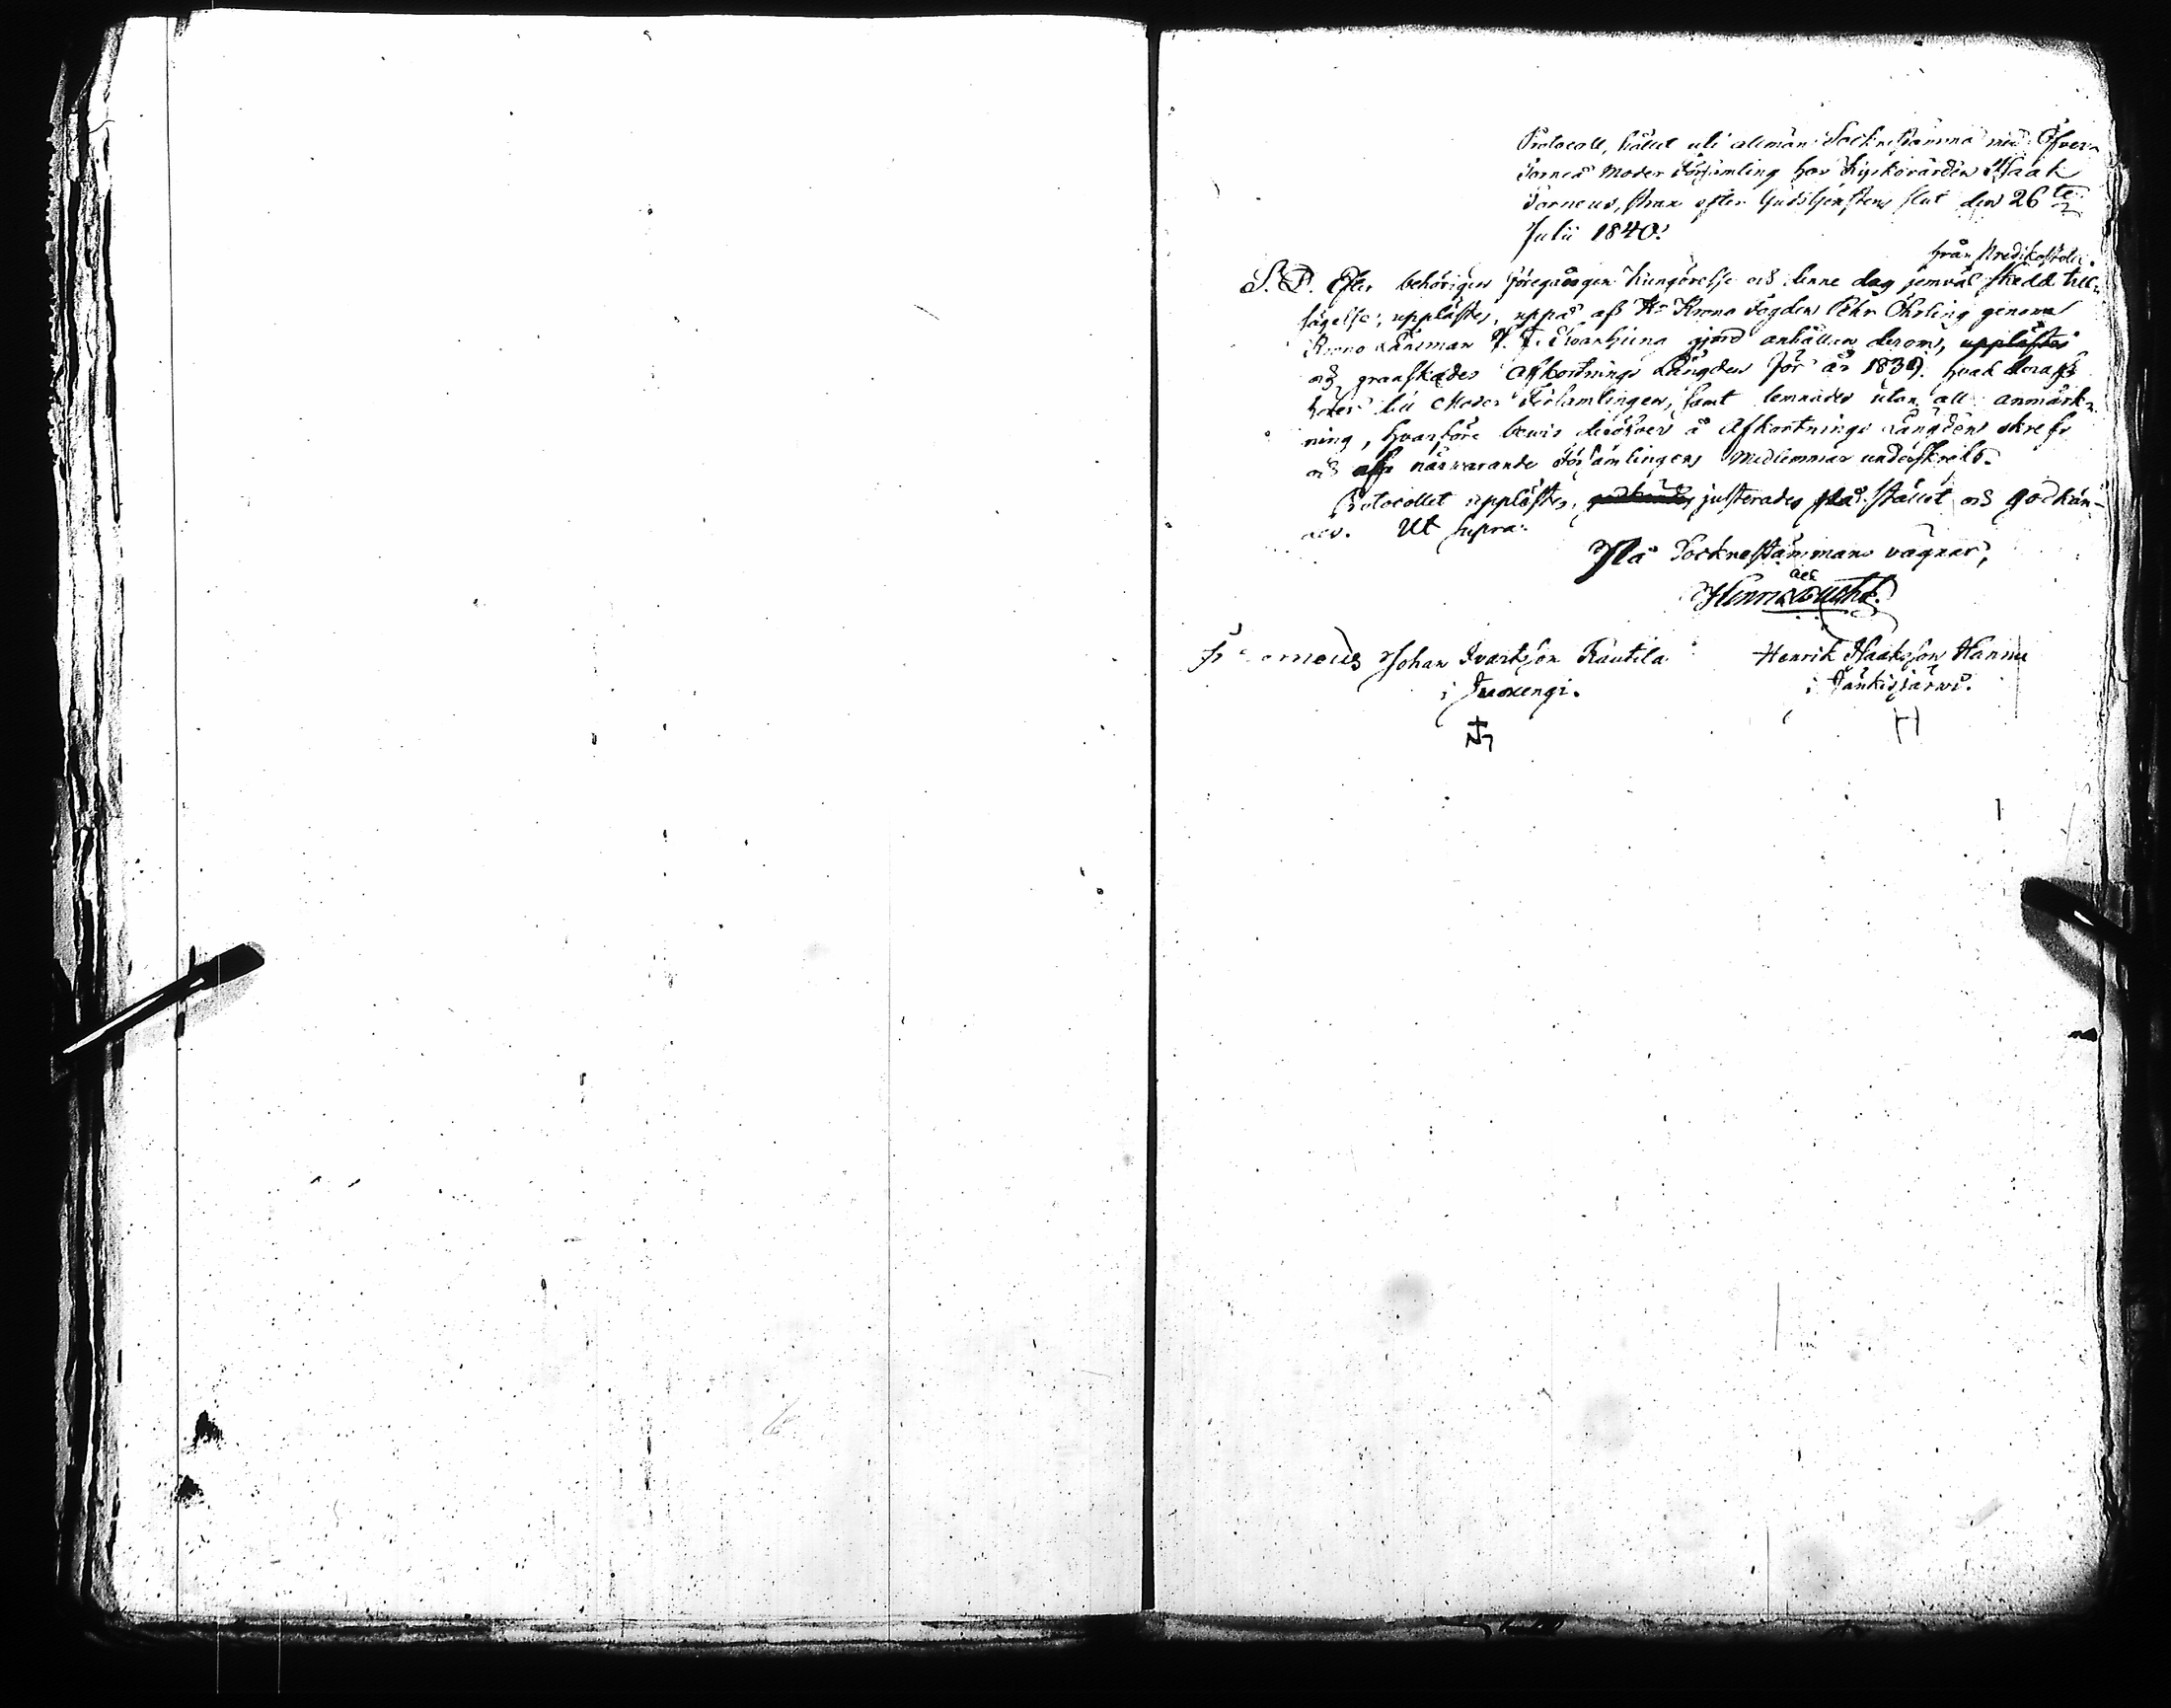 Protocoll, hållet uti allmän Sockenstämma med Öfver-
Torneå Moder Församling hos Kyrkovärden Isaak
Torneus, strax efter Gudstjenstens slut den 26te
Julii 1840.
från Predikostolen
S. D. Efter behörigen föregången Kungörelse och denne dag jemväl skedd till-
sägelse, upplästes, uppå af Hr Krono Fogden Pehr Öhrling genom
Krono Länsman gjord anhållan derom, upplästes
och granskades Afkortnings Längden för år 1839. hvad deraf
hörer till Moder Församlingen, samt lemnades utan all anmärk-
ning, hvarföre bewis deröfver å Afkortnings Längden skrefs
och af närvarande Församlingens Medlemmar underskrefs.
Protocollet upplästes, godkändes justerades på stället och godkän-
des. Ut supra.
På Sockenstämmans vägnar,
Henric
Johan Ivarsson Rautila Henrik Isaaksson Hannu
i Juoxengi. i Jänkisjärwi.
H